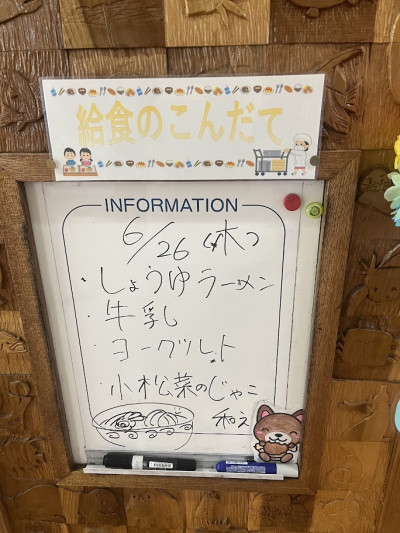 給食のこんだて
INFORMATION
6/26(木)
・しょうゆラーメン
・牛乳
・ヨーグルト
・小松菜のじゃこ
和え